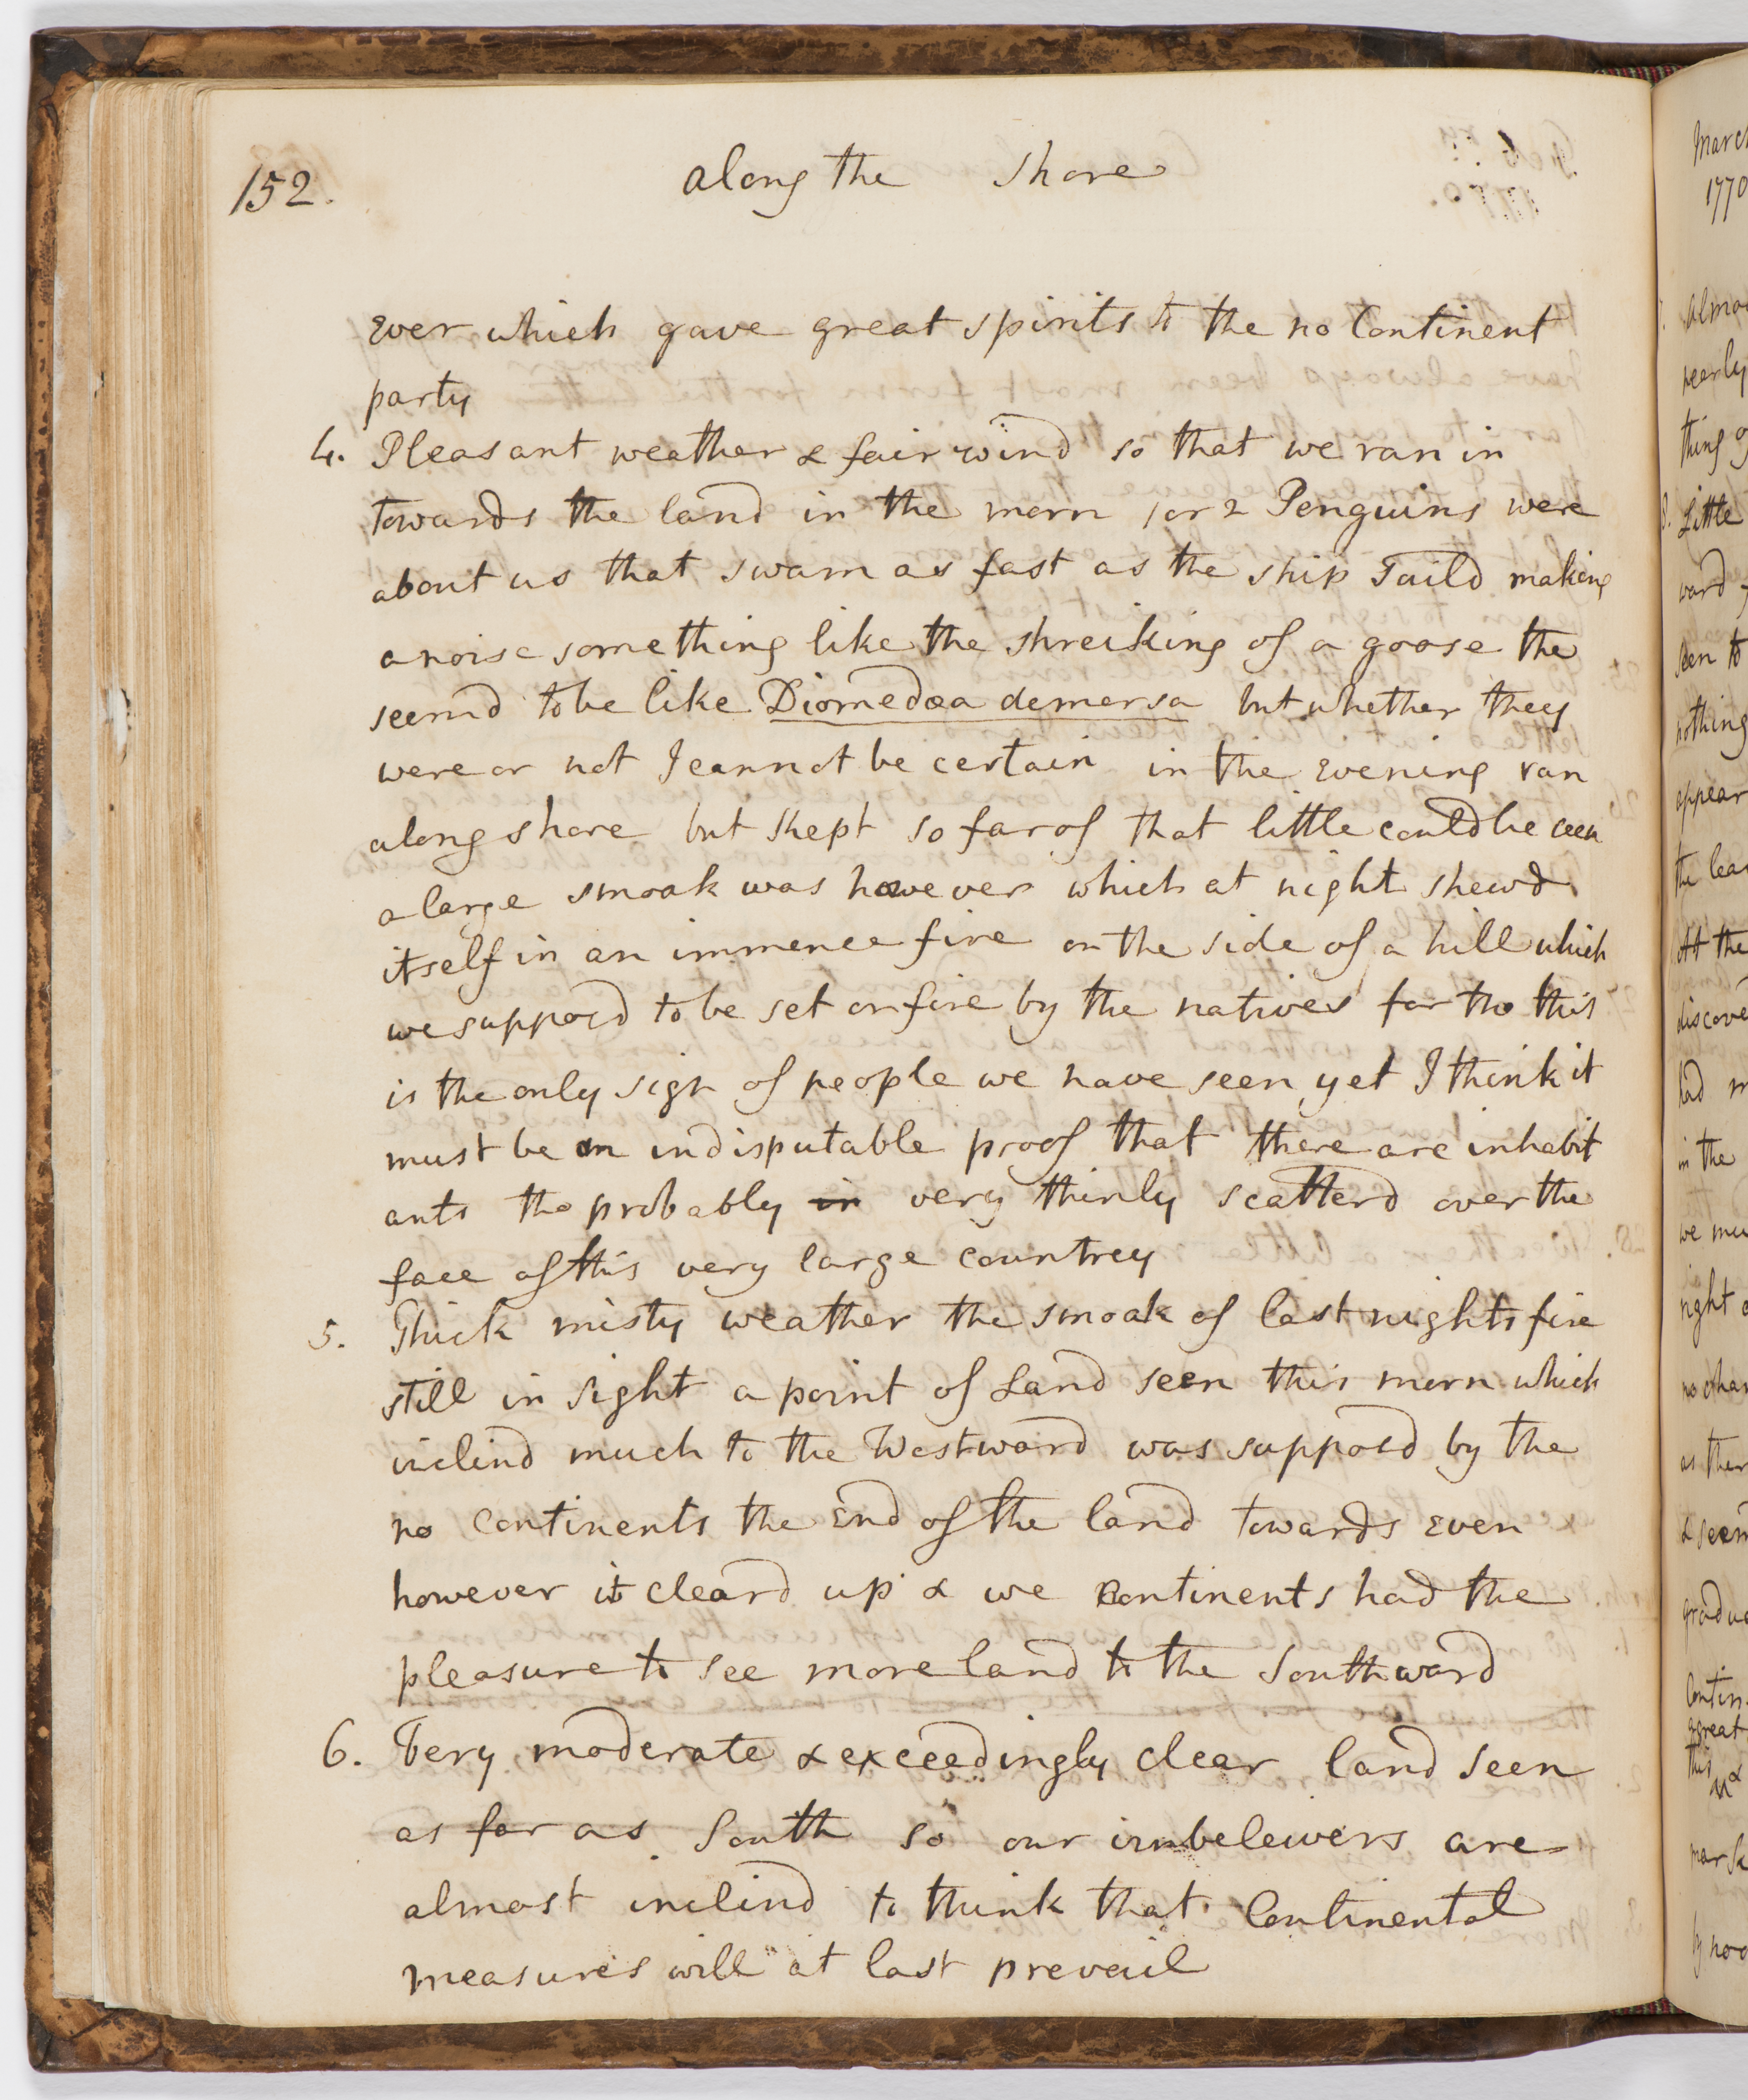 152.
along the shore
ever which gave great spirits to the no Continent
party
4. Pleasant weather & fair wind so that we ran in
towards the land in the morn 1 or 2 Penguins were
about us that swam as fast as the ship Saild making
a noise something like the shreiking of a goose the
seemd to be like Diomedæa demersa but whether they
were or not I cannot be certain in the evening ran
along shore but kept so far of that little could be seen
a large smoak was however which at night shewd
itself in an immence fire on the side of a hill which
we supposd to be set on fire by the natives for tho this
is the only sign of people we have seen yet I think it
must be an indisputable proof that there are inhabit
ants tho probably in very thinly scatterd over the
face of this very large countrey
5. Thick misty weather the smoak of last nights fire
still in sight a point of Land seen this morn which
inclind much to the Westward was supposd by the
no Continents the End of the land towards even
however it cleard up & we Continents had the
pleasure to see more land to the Southward
6. Very moderate & exceedingly clear land seen
as far as South so our unbeleivers are
almost inclind to think that Continental
measures will at last prevail
March
1770
nearly
thing
Little
ward
seen to
nothing
appear
the
At the
had
in the
we
right
as
&
this